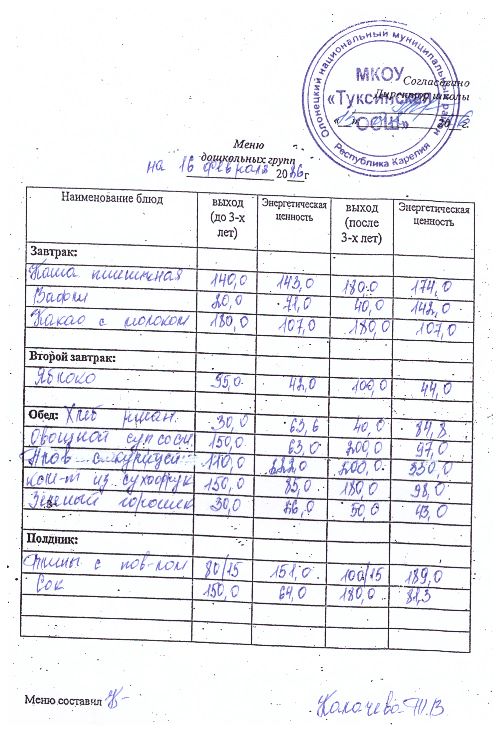 Олонецкий национальный муниципальный район
МКОУ
«Туксинская
ООШ»
Республика Карелия
Согласовано
Директор школы
20 г.
Меню
дошкольных групп
на 16 февраля 20 г
Наименование блюд выход (до 3-х лет) Энергетическая ценность выход (после 3-х лет) Энергетическая ценность
Завтрак:
Каша пшеничная 140,0 143,0 180,0 174,0
Вафли 20,0 71,0 40,0 142,0
Какао с молоком 180,0 107,0 180,0 107,0
Второй завтрак:
Яблоко 95,0 42,0 100,0 44,0
Обед: Хлеб ржан. 30,0 63,6 40,0 84,8
Овощной суп 150,0 63,0 200,0 97,0
с курицей 222,0 200,0 330,0
ком-т из сухофрук 150,0 85,0 180,0 98,0
Зеленый горошек 30,0 50,0 43,0
Полдник:
с пов-лом 80/15 151,0 100/15 189,0
Сок 150,0 64,0 180,0 81,3
Меню составил
Калачева Т.В